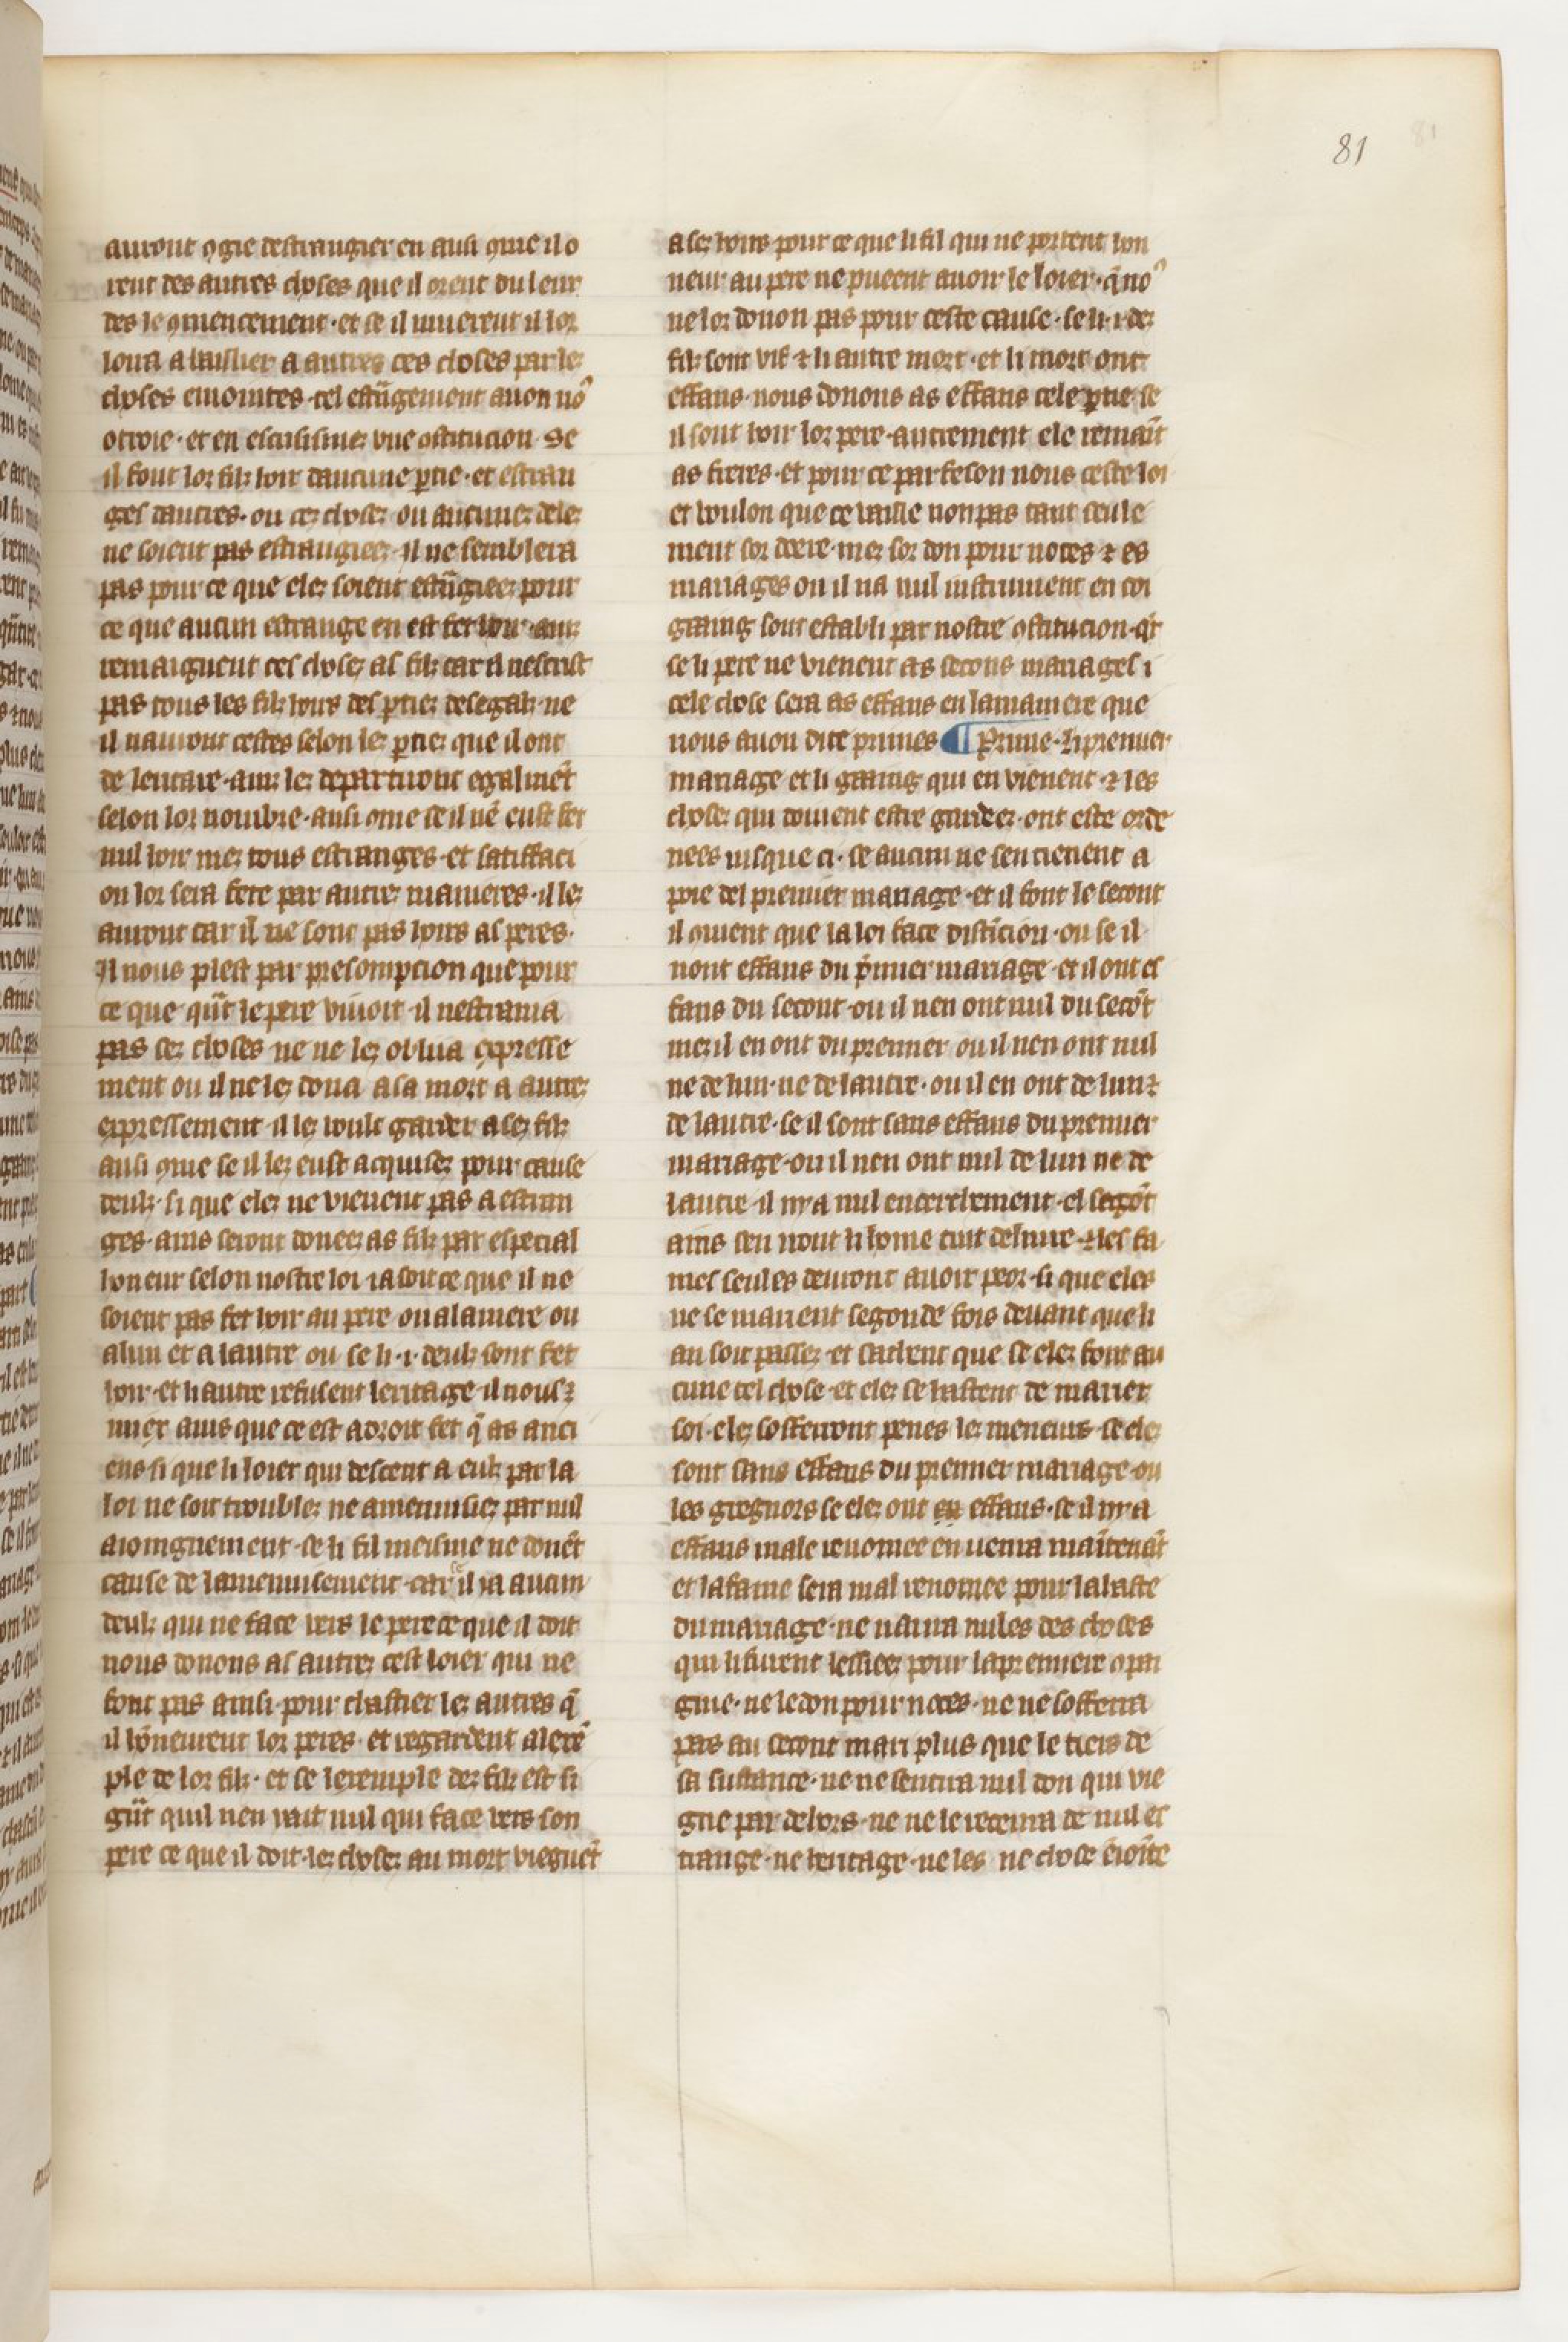 81
auront ꝯgie destrangier en ausi ꝯme il o
rent des autres choses que il orent du leur
des le ꝯmencement · et se il muerent il lor
loua a laissier a autres ces choses par les
choses enuointes · cel estᷓgement auon noꝰ
otroie · et en escusismes vne ꝯstitucion Se
il font lor filz hoir daucune ꝑtie · et estran
ges dautres · ou cez chosez ou aucunez delez
ne soient pas estrangieez · il ne semblera
pas pour ce que elez soient estᷓgieez pour
ce que aucun estrange en est fet hoir · ainz
remaignent ces chosez as filz car il nescrist
pas tous les filz hoirs des ꝑtiez desegalz · ne
il nauront cestes selon lez ꝑtiez que il ont
de leritaie · ainz lez departiront egalmēt
selon lor nombre · ausi ꝯme se il nē eust fet
nul hoir mez tous estranges · et satiffaci
on lor sera fete par autrez manieres · il lez
auront car il ne sont pas hoirs as peres ·
Il nous plest par presompcion que pour
ce que qūt le pere viuoit · il nestrania
pas sez choses ne ne lez oblija expresse
ment ou il ne lez dona a sa mort a autrez
expressement · il lez voult garder a sez filz
ausi ꝯme se il lez eust acquisez pour cause
deulz · si que elez ne vienent pas a estran
ges · ains seront doneez as filz par especial
honeur selon nostre loi · ia soit ce que il ne
soient pas fet hoir au pere ou a la mere ou
a lun et a lautre ou se li · i · deulz sont fet
hoir · et li autre refusent leritage · il nous ⁊
uiier auis que ce est a droit fet q̄ as anci
ens · si que li loier qui descent a eulz par la
loi ne soit troublez ne amenuisiez par nul
aioingnement · se li fil meisme ne donēt
cause de lamenuisement · car se il ia aucun
deulz qui ne face vers le pere ce que il doit
nous donons as autrez cest loier qui ne
font pas ainsi · pour chastier lez autres q̄
il hōneurent lor peres · et regardent a lexē
ple de lor filz · et se lexemple dez filz est si
gᷓnt quil nen yait nul qui face vers son
pere ce que il doit · lez chosez au mort viegnēt
a sez hoirs pour ce que li fil qui ne portent hon
neur au pere ne pueent auoir le loier · q̄ noꝰ
ne lor donon pas pour ceste cause · se li · i · dez
filz sont vif ⁊ li autre mort · et li mort ont
effans · nous donons as effans cele ꝑtie se
il sont hoir lor pere · autrement ele remaīt
as freres · et pour ce parfeson nous ceste loi
et voulon que ce vaille non pas tant seule
ment sor deere · mez sor don pour noces ⁊ es
mariages ou il na nul instrument en coi
graing sont establi par nostre ꝯstitucion · qr̄
se li pere ne vienent as secons mariages i
cele chose sera as effans en la maniere que
nous auon dite primes ¶ Prime · li premier
mariage et li graing qui en vienent · ⁊ les
chosez qui doiuent estre gardeez · ont este orde
nees iusque ci · se aucun ne sen tienent a
poie del premier mariage · et il font le secont
il ꝯuient que la loi face distīcion · ou se il
nont effans du p̄mier mariage · et il ont ef
fans du secont · ou il nen ont nul du secōt
mez il en ont du premier ou il nen ont nul
ne de lun · ne de lautre · ou il en ont de lun ⁊
de lautre · se il sont sans effans du premier
mariage · ou il nen ont nul de lun ne de
lautre · il ny a nul encerchement · el segōt
ains seu nont li home cuit deliure · ⁊ les fa
mes seules deuront auoir peor · si que eles
ne se marient segonde fois deuant que li
an soit passez · et sachent que se elez font au
cune tel chose · et elez se hastent de marier
soi · elez sosferront penes lez meneurs · se elez
sont sans effans du premier mariage · ou
les gregnors se elez ont en effans · se il ny a
effans male renomee en uenra maītenāt
et la fame sera mal renomee pour la haste
du mariage · ne naura nules des choses
qui li furent lessieez pour la premiere ꝯpai
gnie · ne le don pour noces · ne ne sofferra
pas au secont mari plus que le tiers de
sa sustance · ne ne sentira nul don qui vie
gne par dehors · ne ne le receura de nul es
trange · ne heritage · ne les ne chose ēiōīte